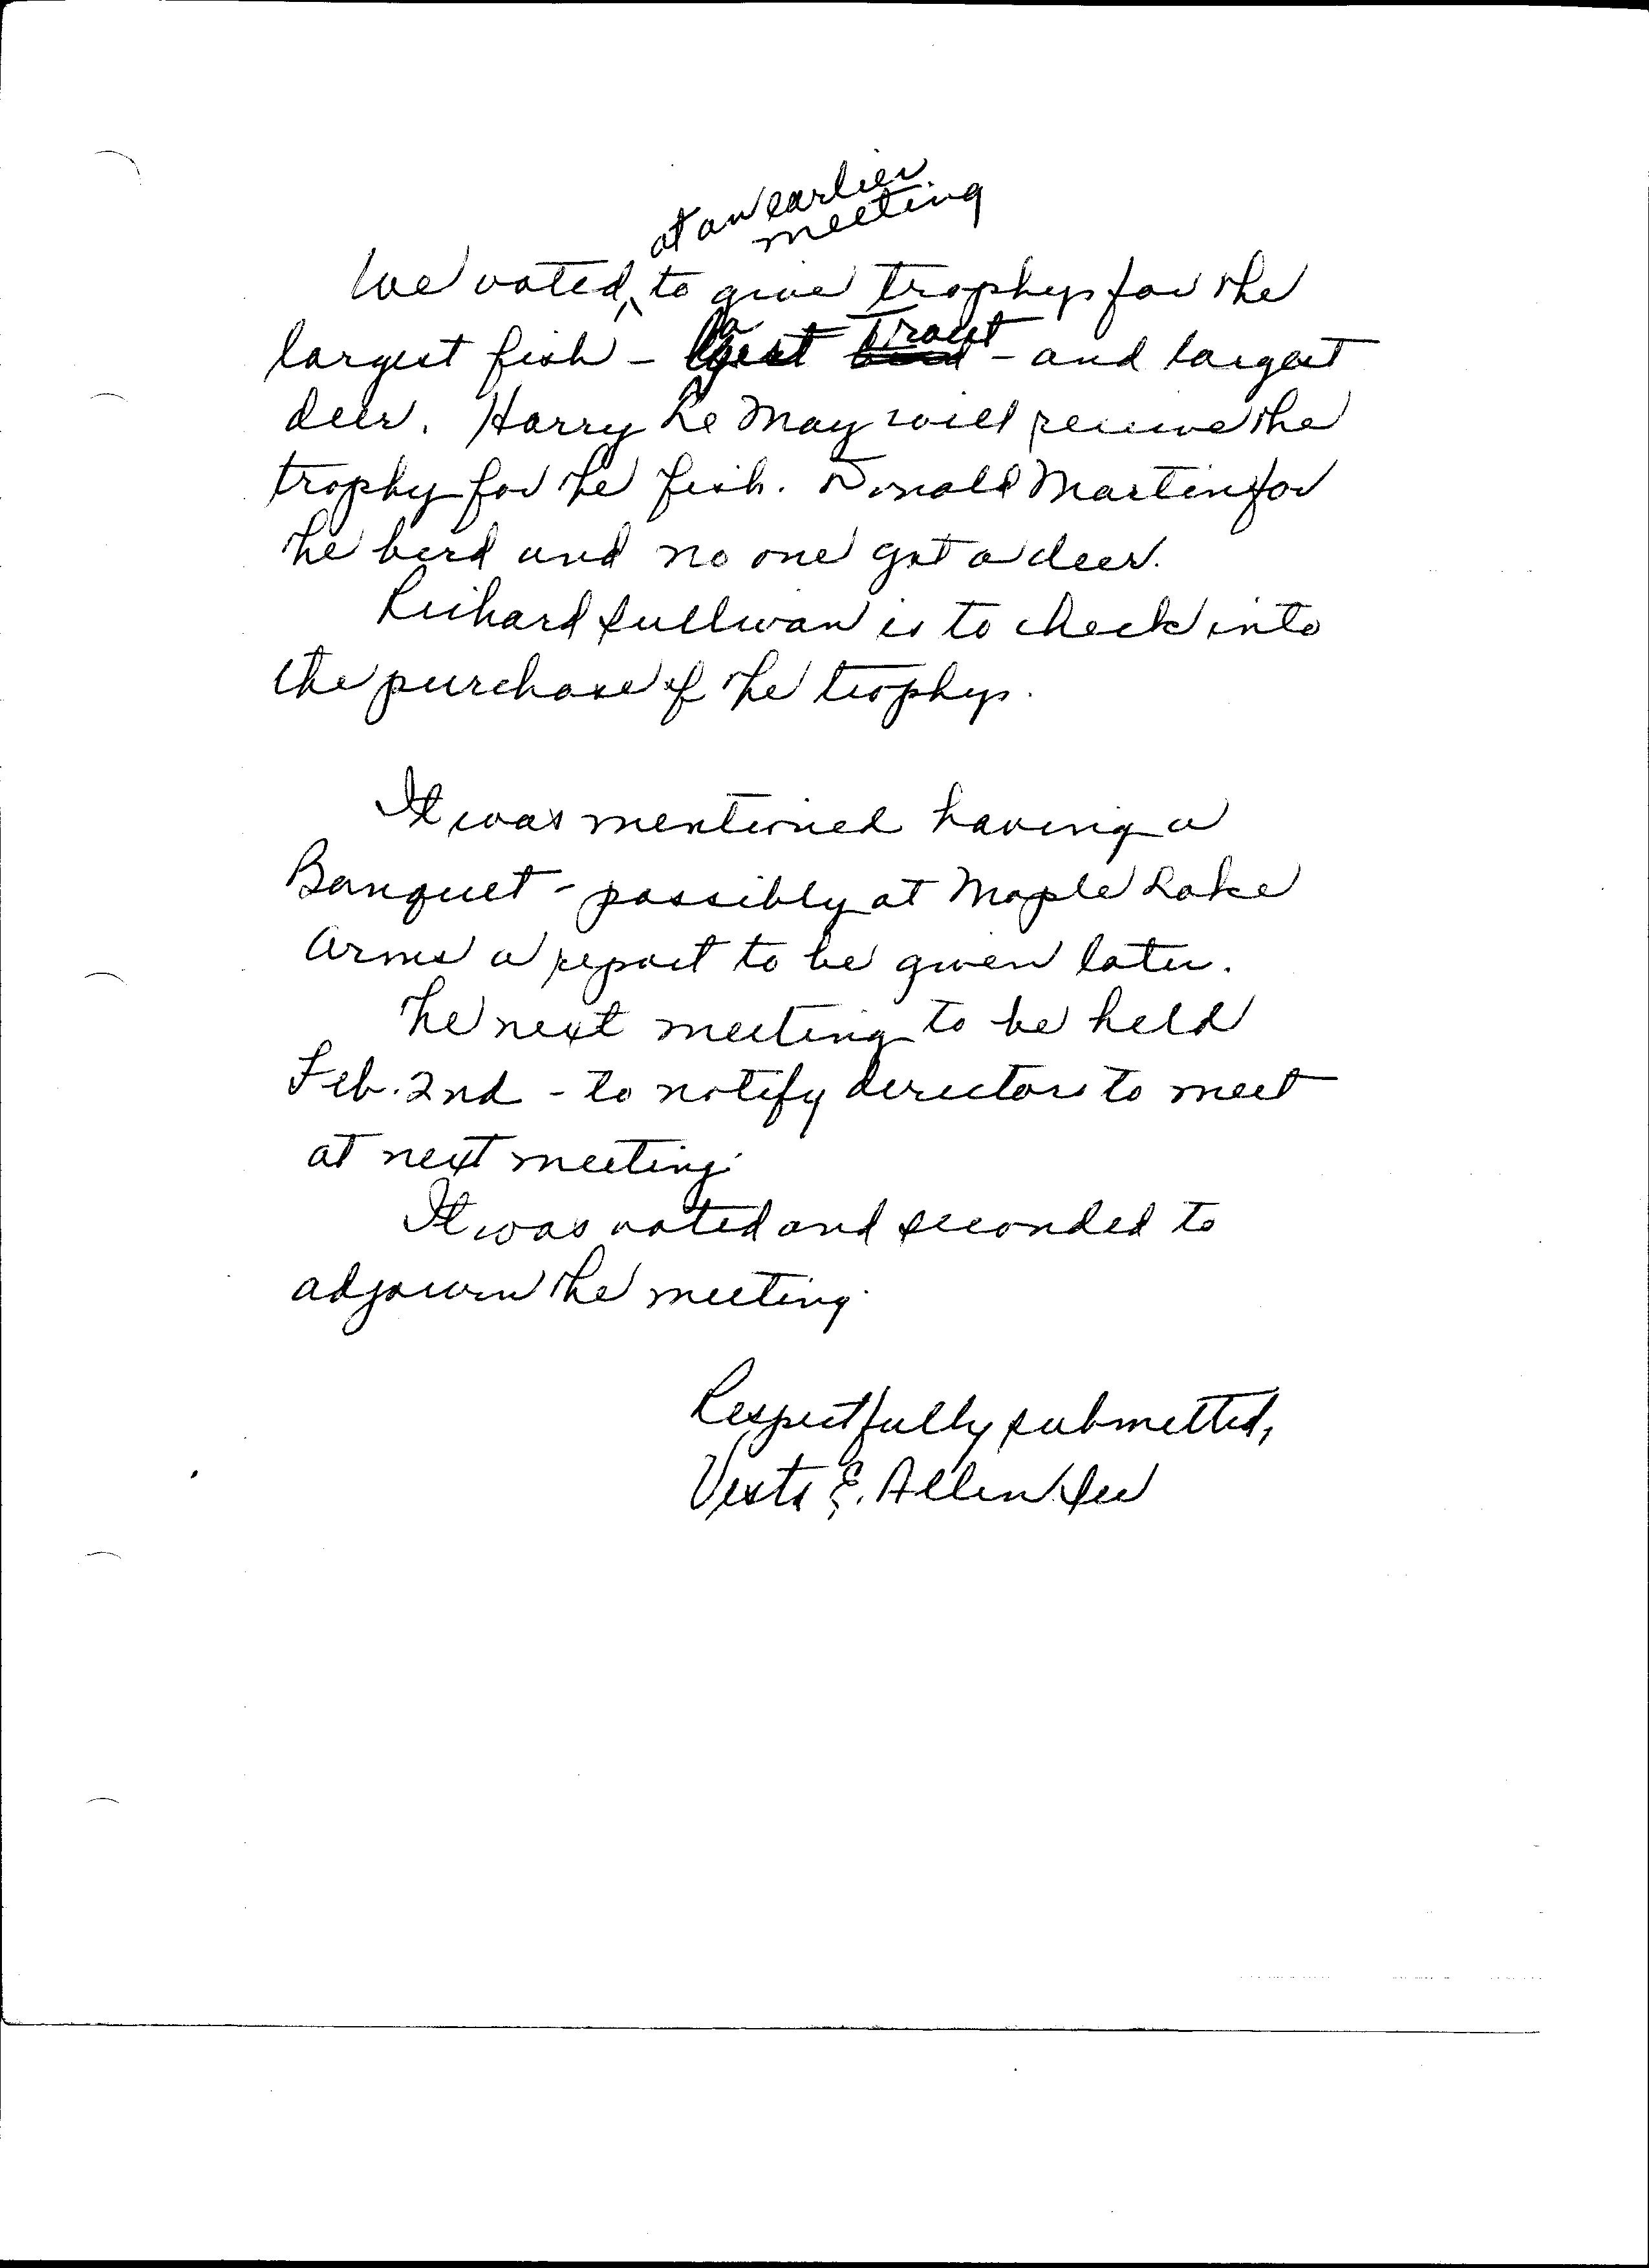 at an earlier
meeting
We voted to give trophys for the
largest fish - Trout - and largest
deer. Harry Le May will receive the
trophy for the fish. Donald Martin for
the bird and no one got a deer.
Richard Sullivan is to check into
the purchase of the trophys.
It was mentioned having a
Banquet - possibly at Maple Lake
Arms a report to be given later.
The next meeting to be held
Feb. 2nd - to notify directors to meet
at next meeting.
It was voted and seconded to
adjourn the meeting.
Respectfully submitted,
Vesta E. Allen Sec